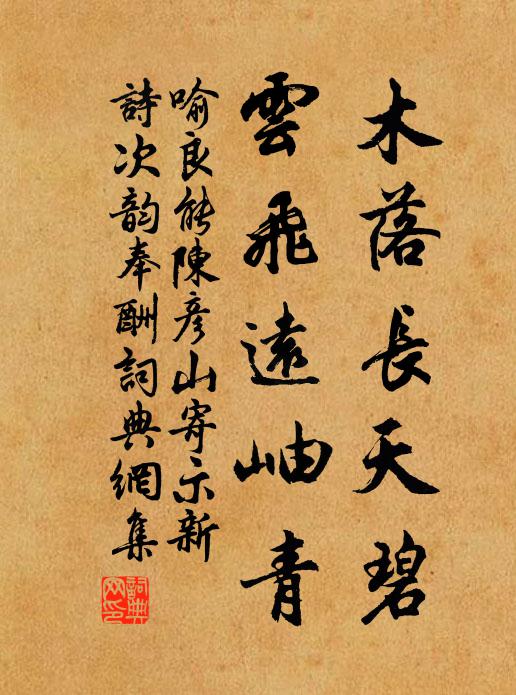 木落長天碧
雲飛遠岫青
喻良能陳彥山寄示新
詩次韵奉酬詞典網集
詞典
网印